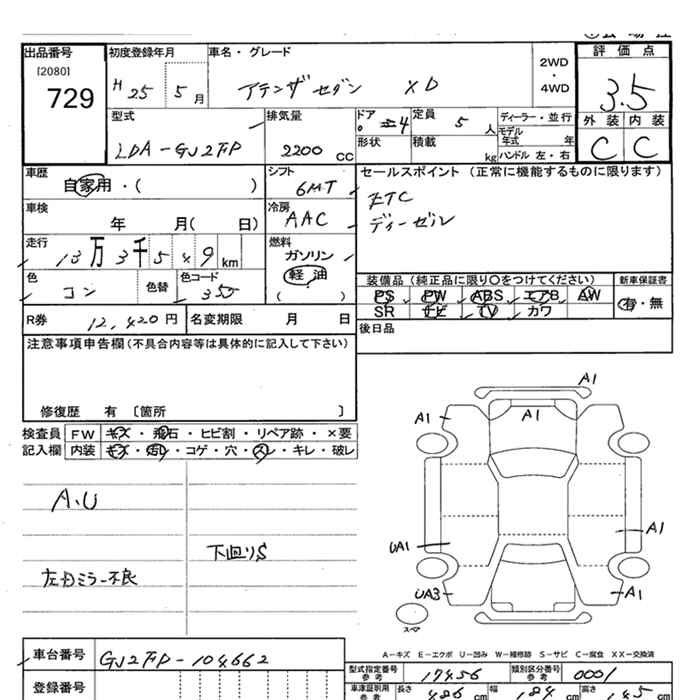 出品番号
[2080]
729
初度登録年月
H 25 5 月
車名・グレード
アテンザ セダン XD
2WD
・
4WD
評価点
3.5
外装 内装
C C
型式
LDA-GJ2FP
排気量
2200 cc
ドア
4
形状
定員
5 人
積載
kg
ディーラー・並行
モデル年式 年
ハンドル 左・右
車歴
自家用・( )
シフト
6MT
セールスポイント (正常に機能するものに限ります)
ETC
ディーゼル
車検
年 月( 日)
冷房
AAC
走行
13万3千549km
燃料
ガソリン
軽油
( )
色
コン
色替
色コード
355
装備品 (純正品に限り○をつけてください)
PS PW ABS エアB AW
SR ナビ TV カワ
新車保証書
有・無
R券 12,420円
名変期限 月 日
後日品
注意事項申告欄(不具合内容等は具体的に記入して下さい)
修復歴 有 〔箇所 〕
検査員記入欄
FW キズ・飛石・ヒビ割・リペア跡・×要
内装 キズ・汚レ・コゲ・穴・スレ・キレ・破レ
A・U
下廻りS
左ドミラー不良
A1
A1
A1
A1
UA1
UA3
A1
スペア
A-キズ E-エクボ U-凹み W-補修跡 S-サビ C-腐食 XX-交換済
車台番号
GJ2FP-104662
登録番号
型式指定番号 参考
17456
類別区分番号 参考
0001
車庫証明用 参考
長さ 486 cm
幅 184 cm
高さ 145 cm